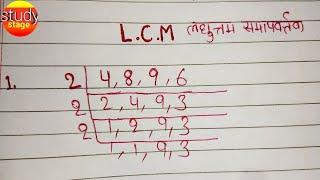 study
stage
L.C.M लघुत्तम समापवर्त्तक
1. 2 4, 8, 9, 6
2 2, 4, 9, 3
2 1, 2, 9, 3
1, 1, 9, 3